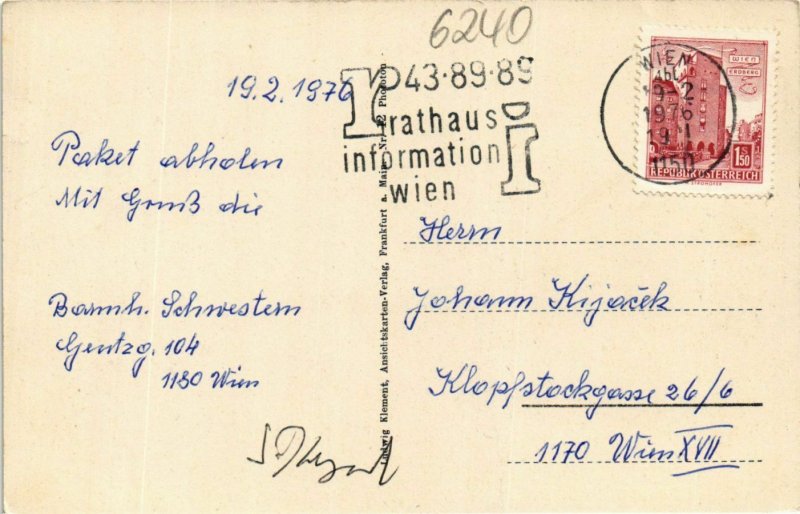 6240
19.2.1976
Paket abholen
Mit Gruß die
Barmh. Schwestern
Gentzg. 104
1180 Wien
43·89·89
rathaus
information
wien
i
WIEN
19-2
1976
19
1150
WIEN
ERDBERG
1S50
REPUBLIK ÖSTERREICH
Ludwig Klement, Ansichtskarten-Verlag, Frankfurt a. Main
Herrn
Johann Kijaček
Klopfstockgasse 26/6
1170 Wien XVII